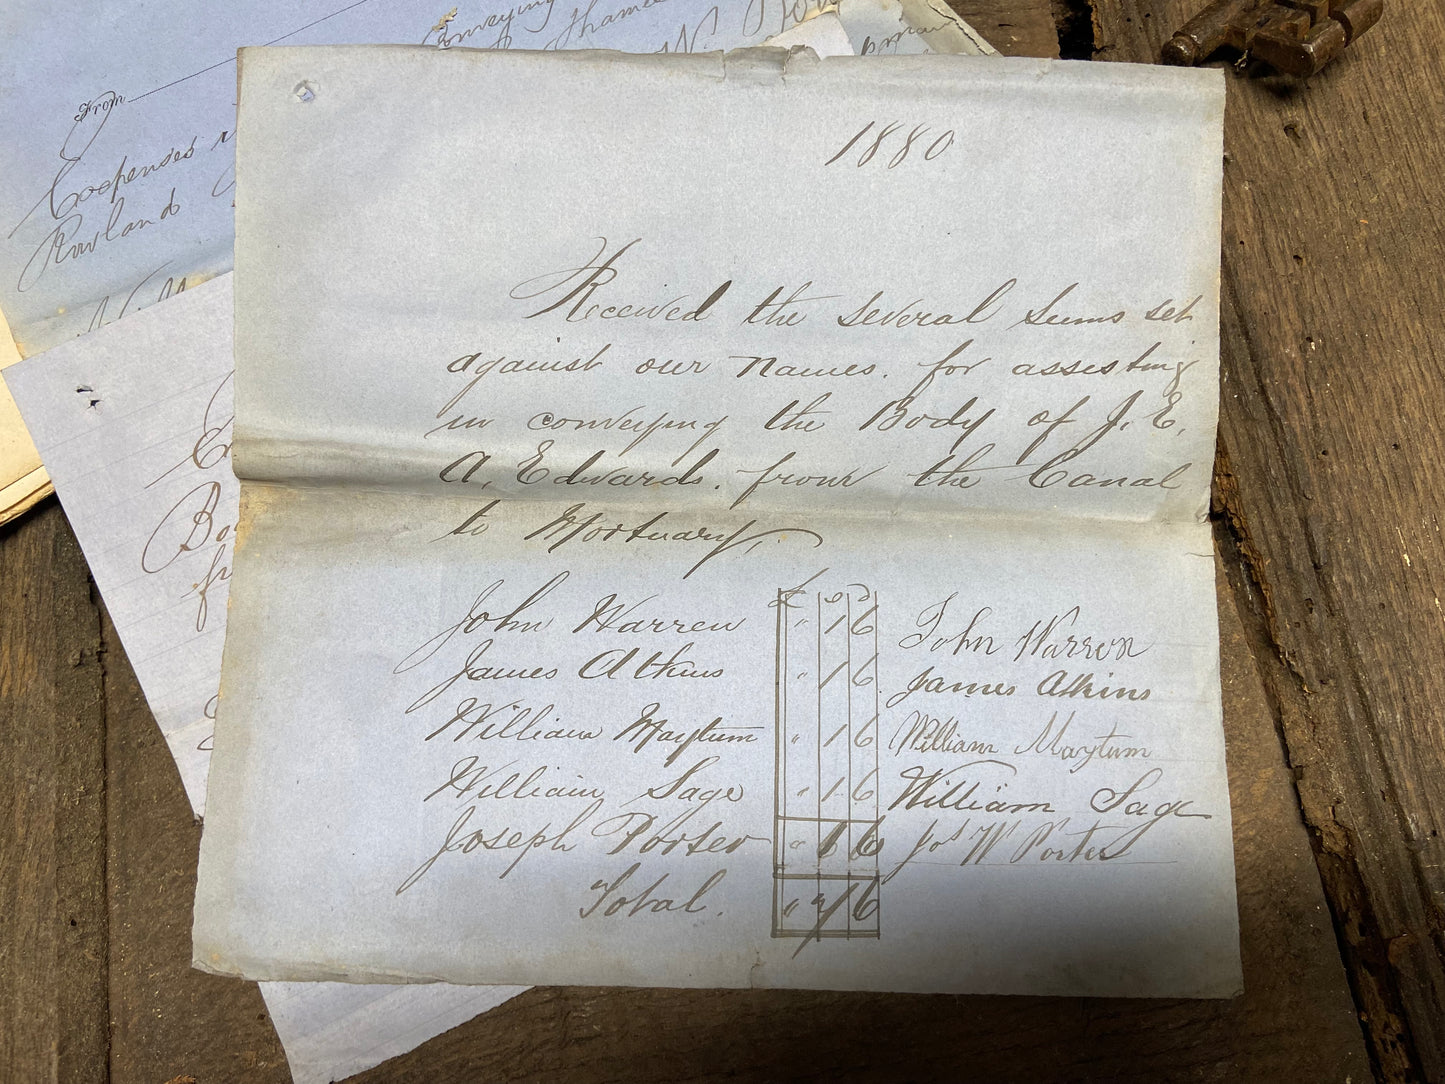 From
Conveying
Expenses
Rowland
1880
Received the several sums set
against our names. for assesting
in conveying the Body of J. E.
A. Edwards. from the Canal
to Mortuary.
£ s d
John Warren " 1 6 John Warren
James Atkins " 1 6 James Atkins
William Maytum " 1 6 William Maytum
William Sage " 1 6 William Sage
Joseph Porter " 1 6 Jos W Porter
Total. " 7 6